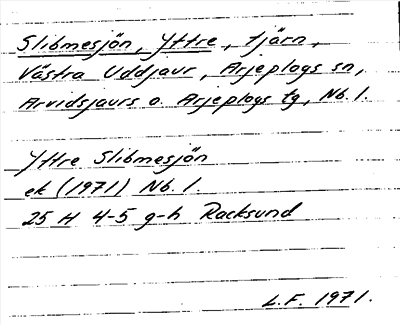 Slibmesjön, Yttre, tjärn,
Västra Uddjaur, Arjeplogs sn,
Arvidsjaurs o. Arjeplogs tg, Nb. l.
Yttre Slibmesjön
ek (1971) Nb. l.
25 H 4-5 g-h Racksund
L.F. 1971.